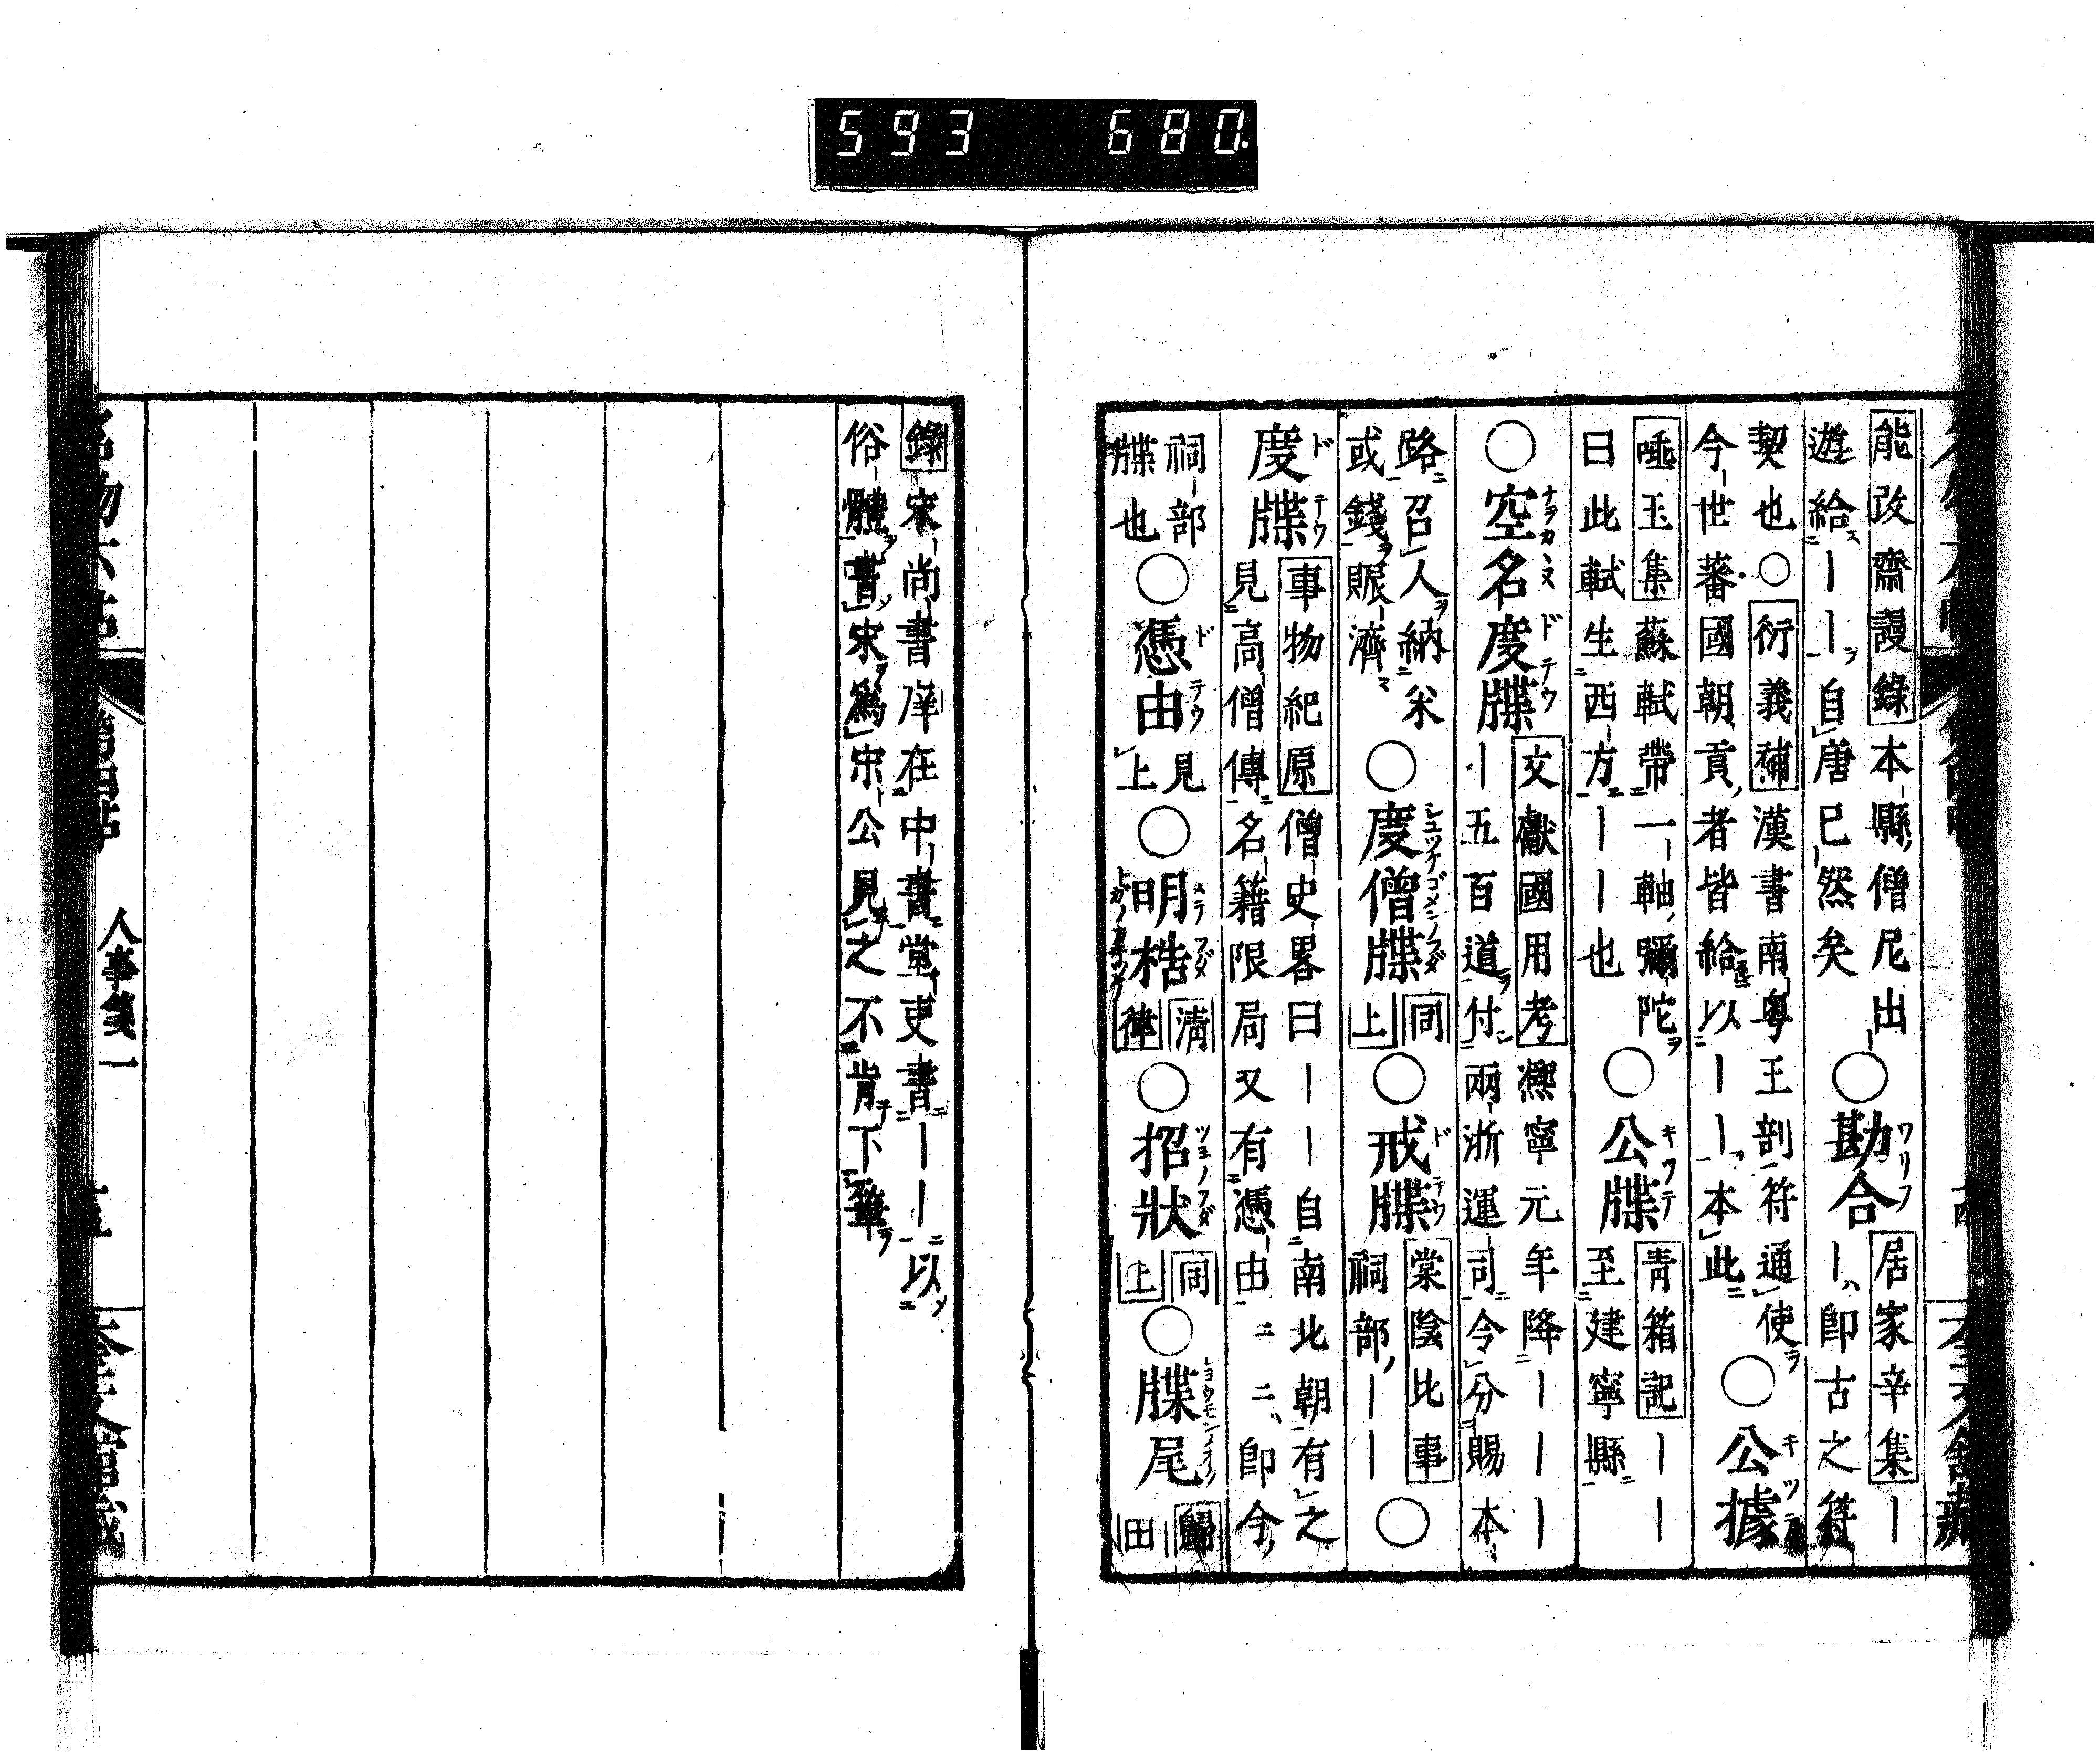 593 680.
能改齋謾錄本縣僧尼出
遊給｜｜自唐已然矣
○勘合
居家辛集｜
｜即古之符
契也○衍義補漢書南粤王剖符通使
今世蕃國朝貢者皆給以｜｜本此
○公據
唾玉集蘇軾帶一軸彌陀
曰此軾生西方｜｜也
○公牒
青箱記｜｜
至建寧縣
○空名度牒
文獻國用考凞寧元年降｜｜｜
｜五百道付兩浙運司令分賜本
路召人納米
或錢賑濟
○度僧牒
同上
○戒牒
棠陰比事
祠部｜｜
○
度牒
事物紀原僧史畧曰｜｜自南北朝有之
見高僧傳名籍限局又有憑由二二即今
祠部
牒也
○憑由
見上
○明梏
清律
○招狀
同上
○牒尾
歸田
錄宋尚書庠在中書堂吏書｜｜以
俗體書宋爲宗公見之不肯下筆
名物六帖
第四帖
人事箋一